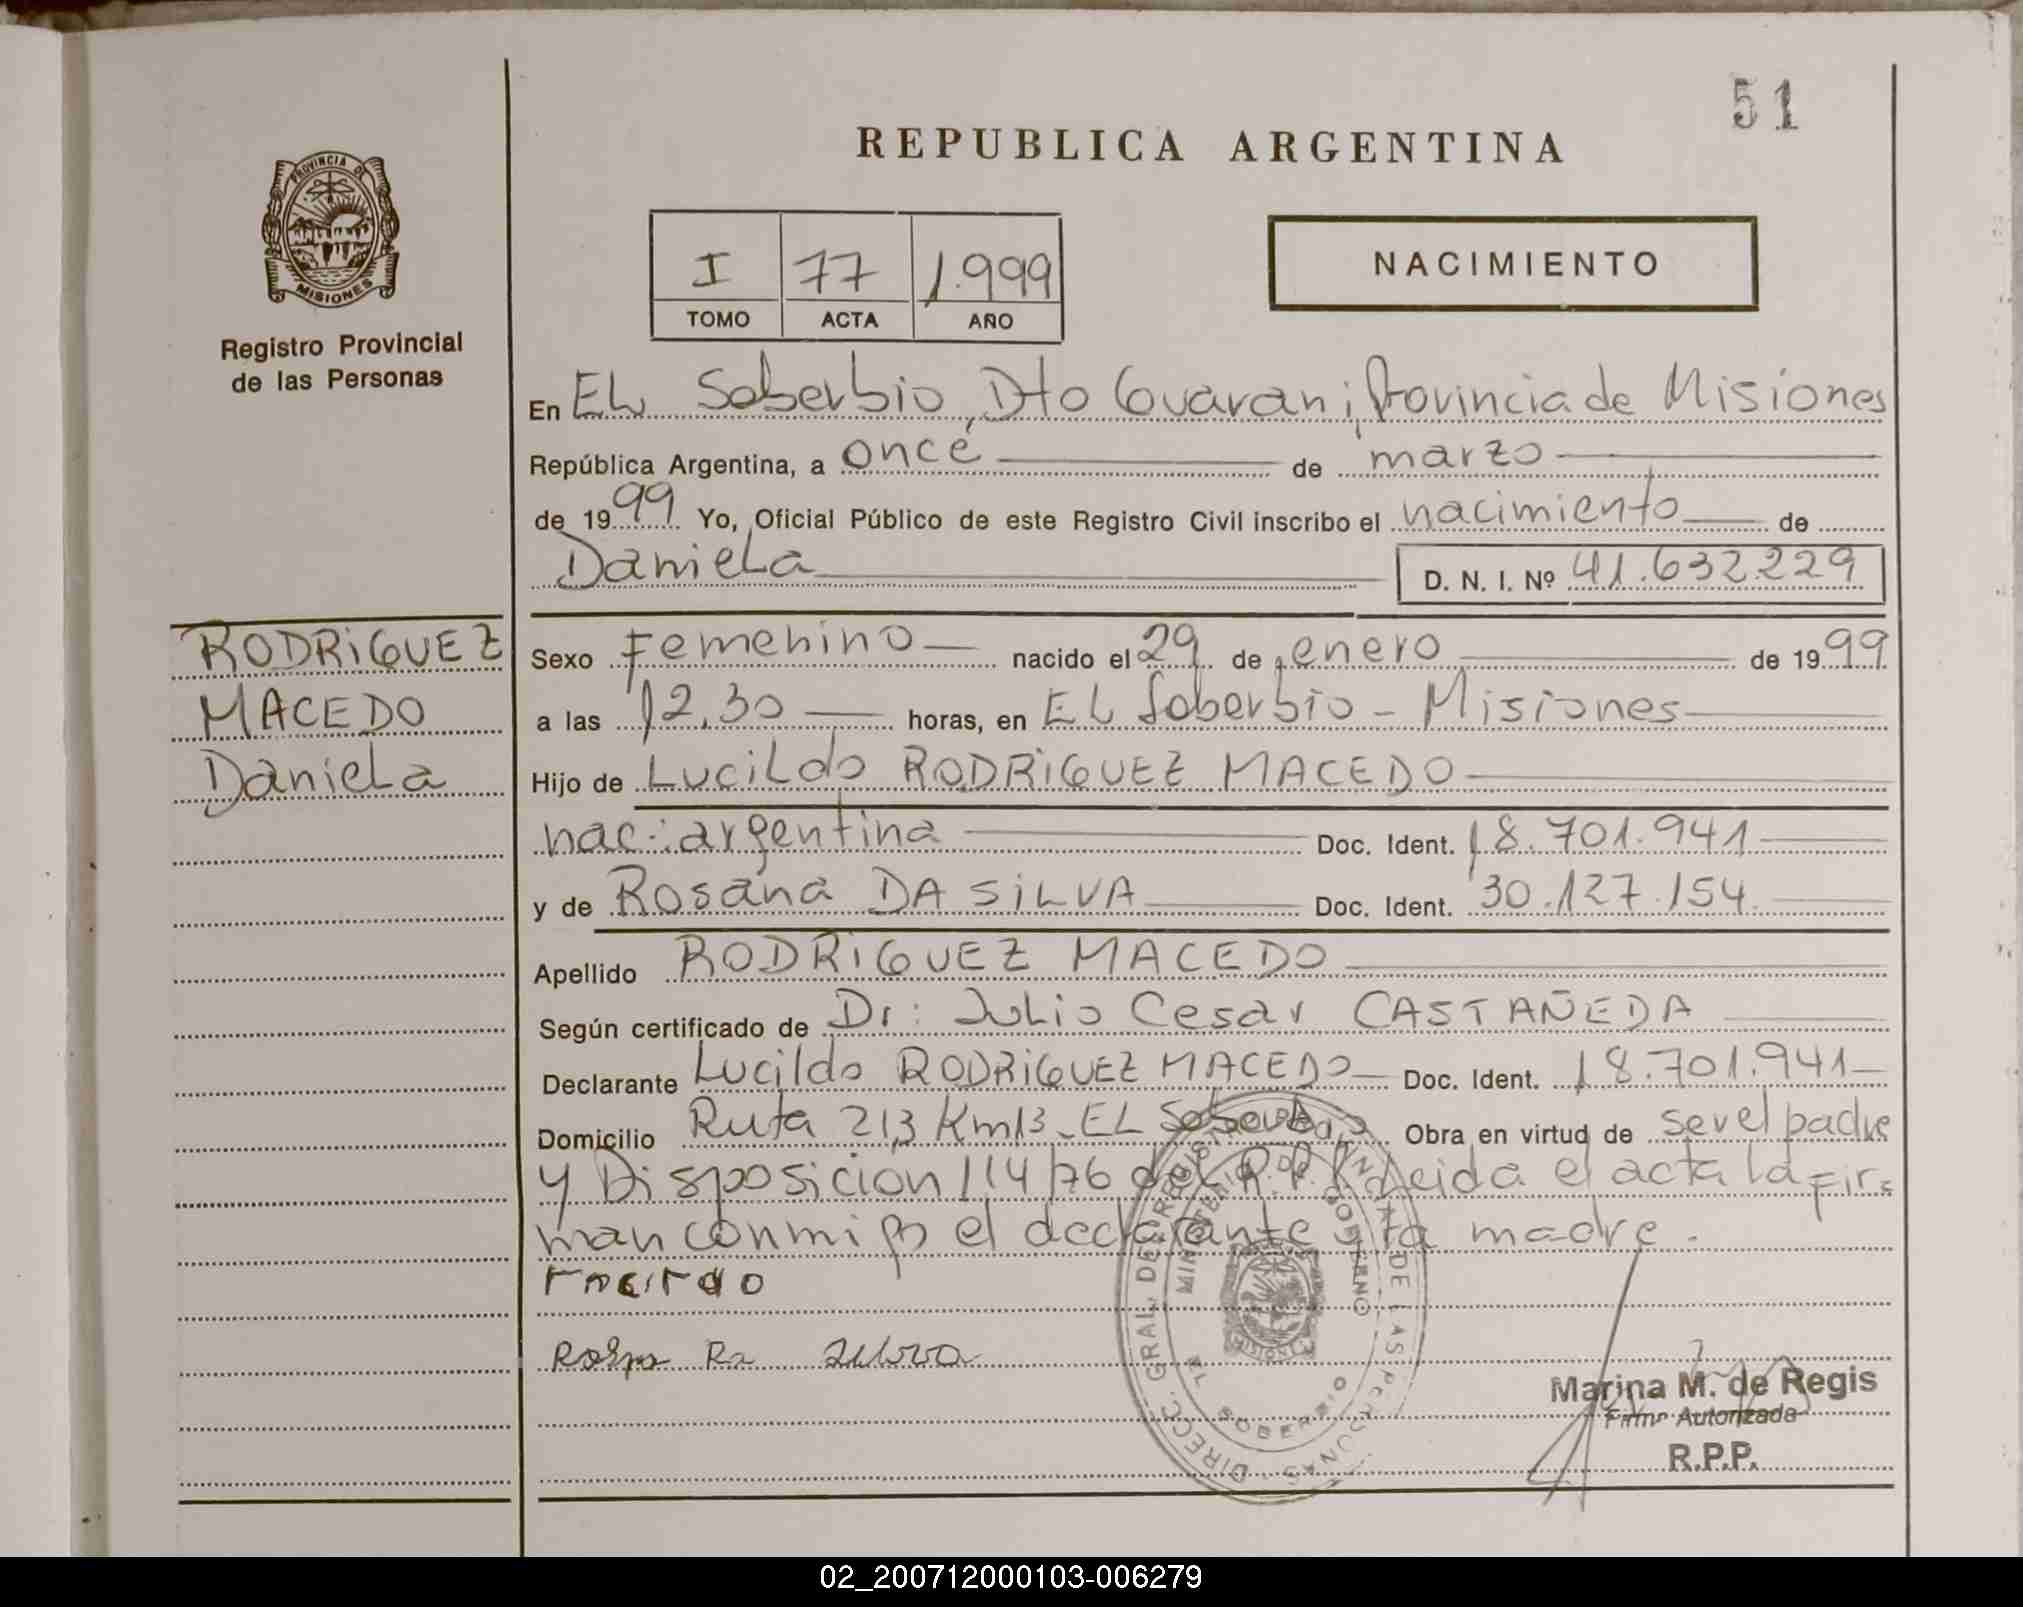 51
REPUBLICA ARGENTINA
PROVINCIA DE
MISIONES
Registro Provincial
de las Personas
I 77 1.999
TOMO ACTA AÑO
NACIMIENTO
En EL Soberbio, Dto Guarani, Provincia de Misiones
República Argentina, a once de marzo
de 1999 Yo, Oficial Público de este Registro Civil inscribo el nacimiento de
Daniela D. N. I. Nº 41.632.229
RODRIGUEZ
MACEDO
Daniela
Sexo Femenino nacido el 29 de enero de 1999
a las 12,30 horas, en EL Soberbio - Misiones
Hijo de Lucildo RODRIGUEZ MACEDO
nac: argentina Doc. Ident. 18.701.941
y de Rosana DA SILVA Doc. Ident. 30.127.154
Apellido RODRIGUEZ MACEDO
Según certificado de Dr: Julio Cesar CASTAÑEDA
Declarante Lucildo RODRIGUEZ MACEDO Doc. Ident. 18.701.941
Domicilio Ruta 213 Km13-EL Soberbio Obra en virtud de ser el padre
y Disposicion 114/76 del R.P.P. Leida el acta la fir=
man conmigo el declarante y la madre.
DIRECC. GRAL. DE REGISTRO DE LAS PERSONAS
MINISTERIO DE GOBIERNO
EL SOBERBIO
MISIONES
Marina M. de Regis
Firma Autorizada
R.P.P.
02_200712000103-006279